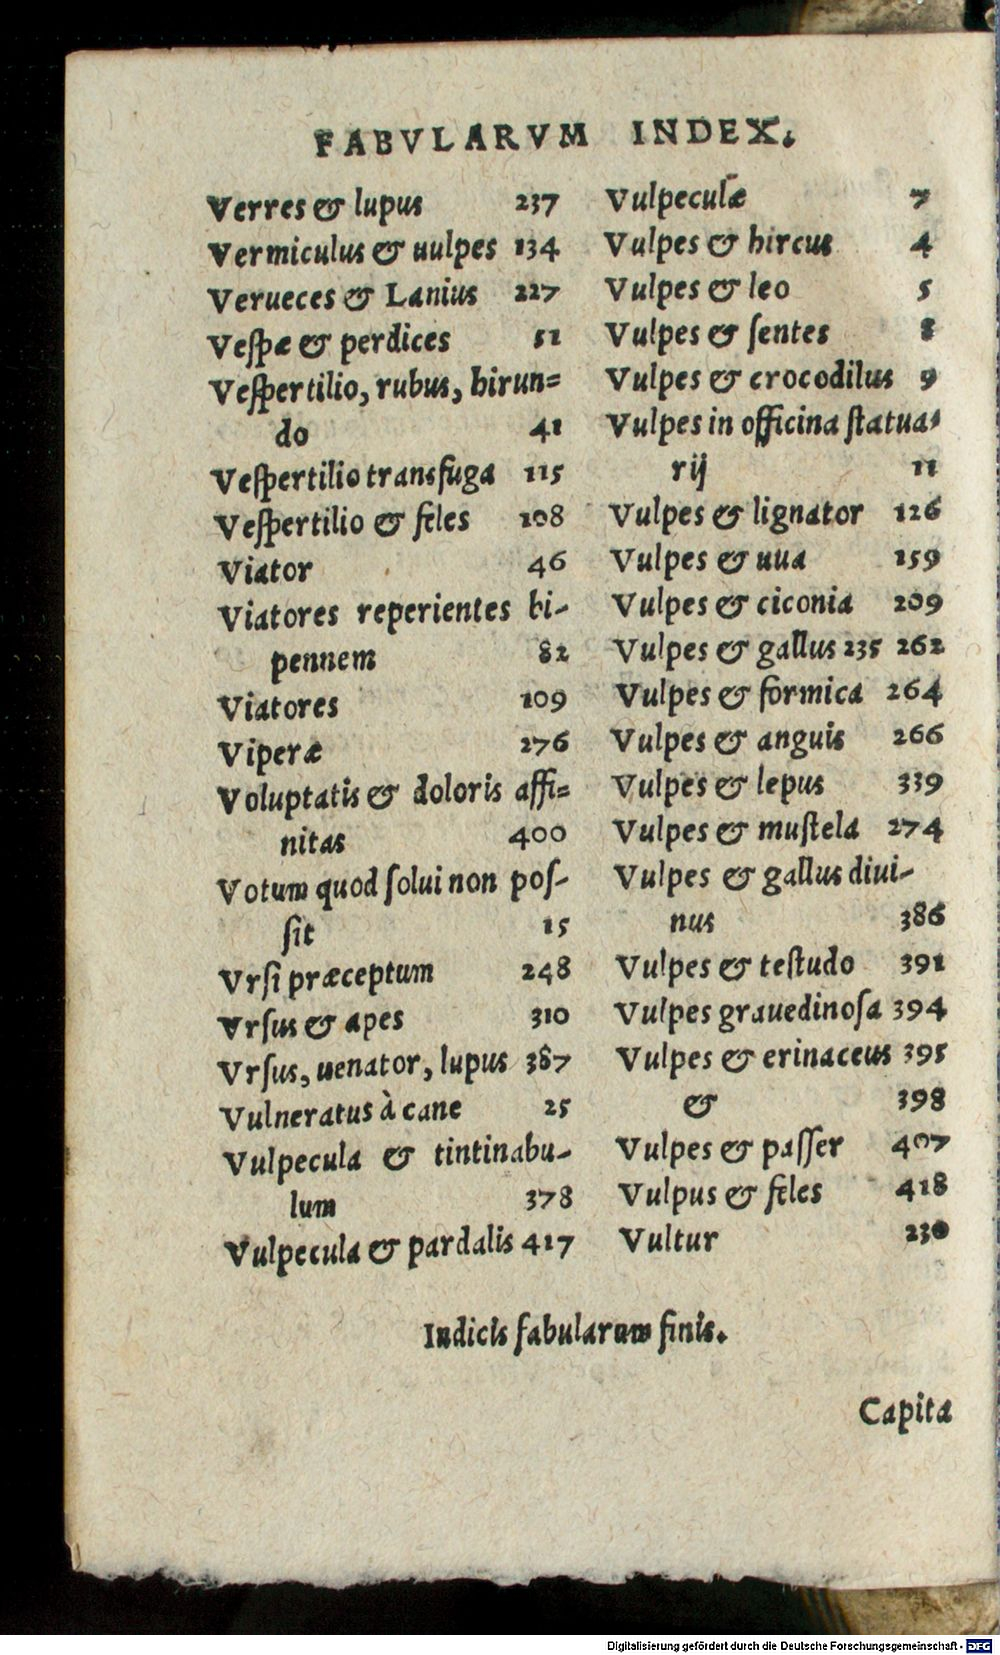 FABVLARVM INDEX.
Verres & lupus 237
Vermiculus & uulpes 134
Verueces & Lanius 227
Veſpæ & perdices 52
Veſpertilio, rubus, hirun=
do 41
Veſpertilio transfuga 115
Veſpertilio & feles 108
Viator 46
Viatores reperientes bi-
pennem 82
Viatores 109
Viperæ 276
Voluptatis & doloris affi=
nitas 400
Votum quod ſolui non poſ-
ſit 15
Vrſi præceptum 248
Vrſus & apes 310
Vrſus, uenator, lupus 387
Vulneratus à cane 25
Vulpecula & tintinabu-
lum 378
Vulpecula & pardalis 417
Vulpeculæ 7
Vulpes & hircus 4
Vulpes & leo 5
Vulpes & ſentes 8
Vulpes & crocodilus 9
Vulpes in officina ſtatua=
rij 11
Vulpes & lignator 126
Vulpes & uua 159
Vulpes & ciconia 209
Vulpes & gallus 235 262
Vulpes & formica 264
Vulpes & anguis 266
Vulpes & lepus 339
Vulpes & muſtela 274
Vulpes & gallus diui-
nus 386
Vulpes & teſtudo 391
Vulpes grauedinoſa 394
Vulpes & erinaceus 395
& 398
Vulpes & paſſer 407
Vulpus & feles 418
Vultur 230
Indicis fabularum finis.
Capita
Digitalisierung gefördert durch die Deutsche Forschungsgemeinschaft - DFG